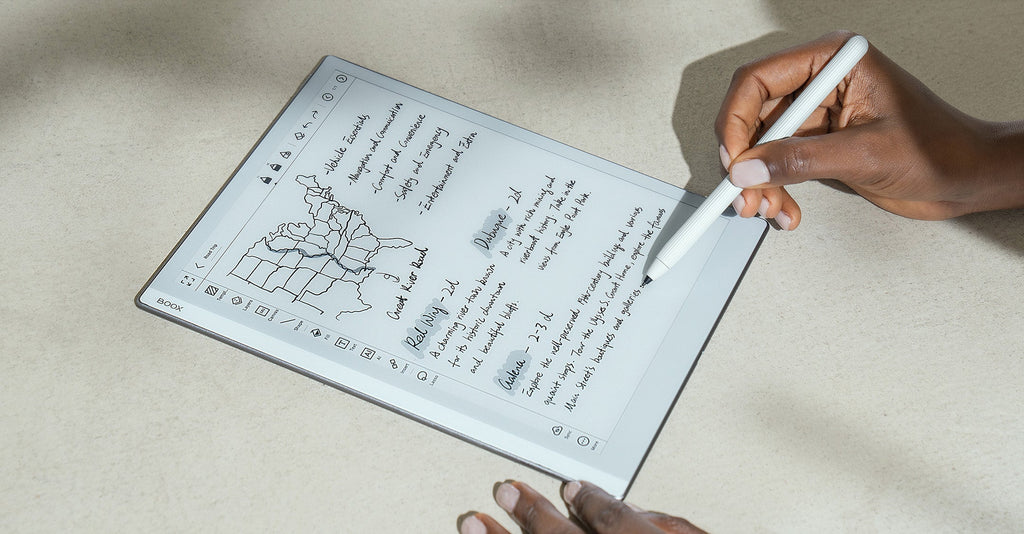 BOOX
Road Trip
-Vehicle Essentials
-Navigation and Communication
-Comfort and Convenience
-Safety and Emergency
-Entertainment and Extra
Great River Road
Red Wing - 2d
A charming river town known
for its historic downtown
and beautiful bluffs.
Dubuque - 2d
A city with rich mining and
riverboat history. Take in the
views from Eagle Point Park.
Galena - 2-3 d
Explore the well-preserved, 19th-century buildings and various
quaint shops. Tour the Ulysses S. Grant Home, explore the famous
Main Street's boutiques and galleries
Layers
Shape
Fill
Text
AI
Insert
Lasso
Sync
More